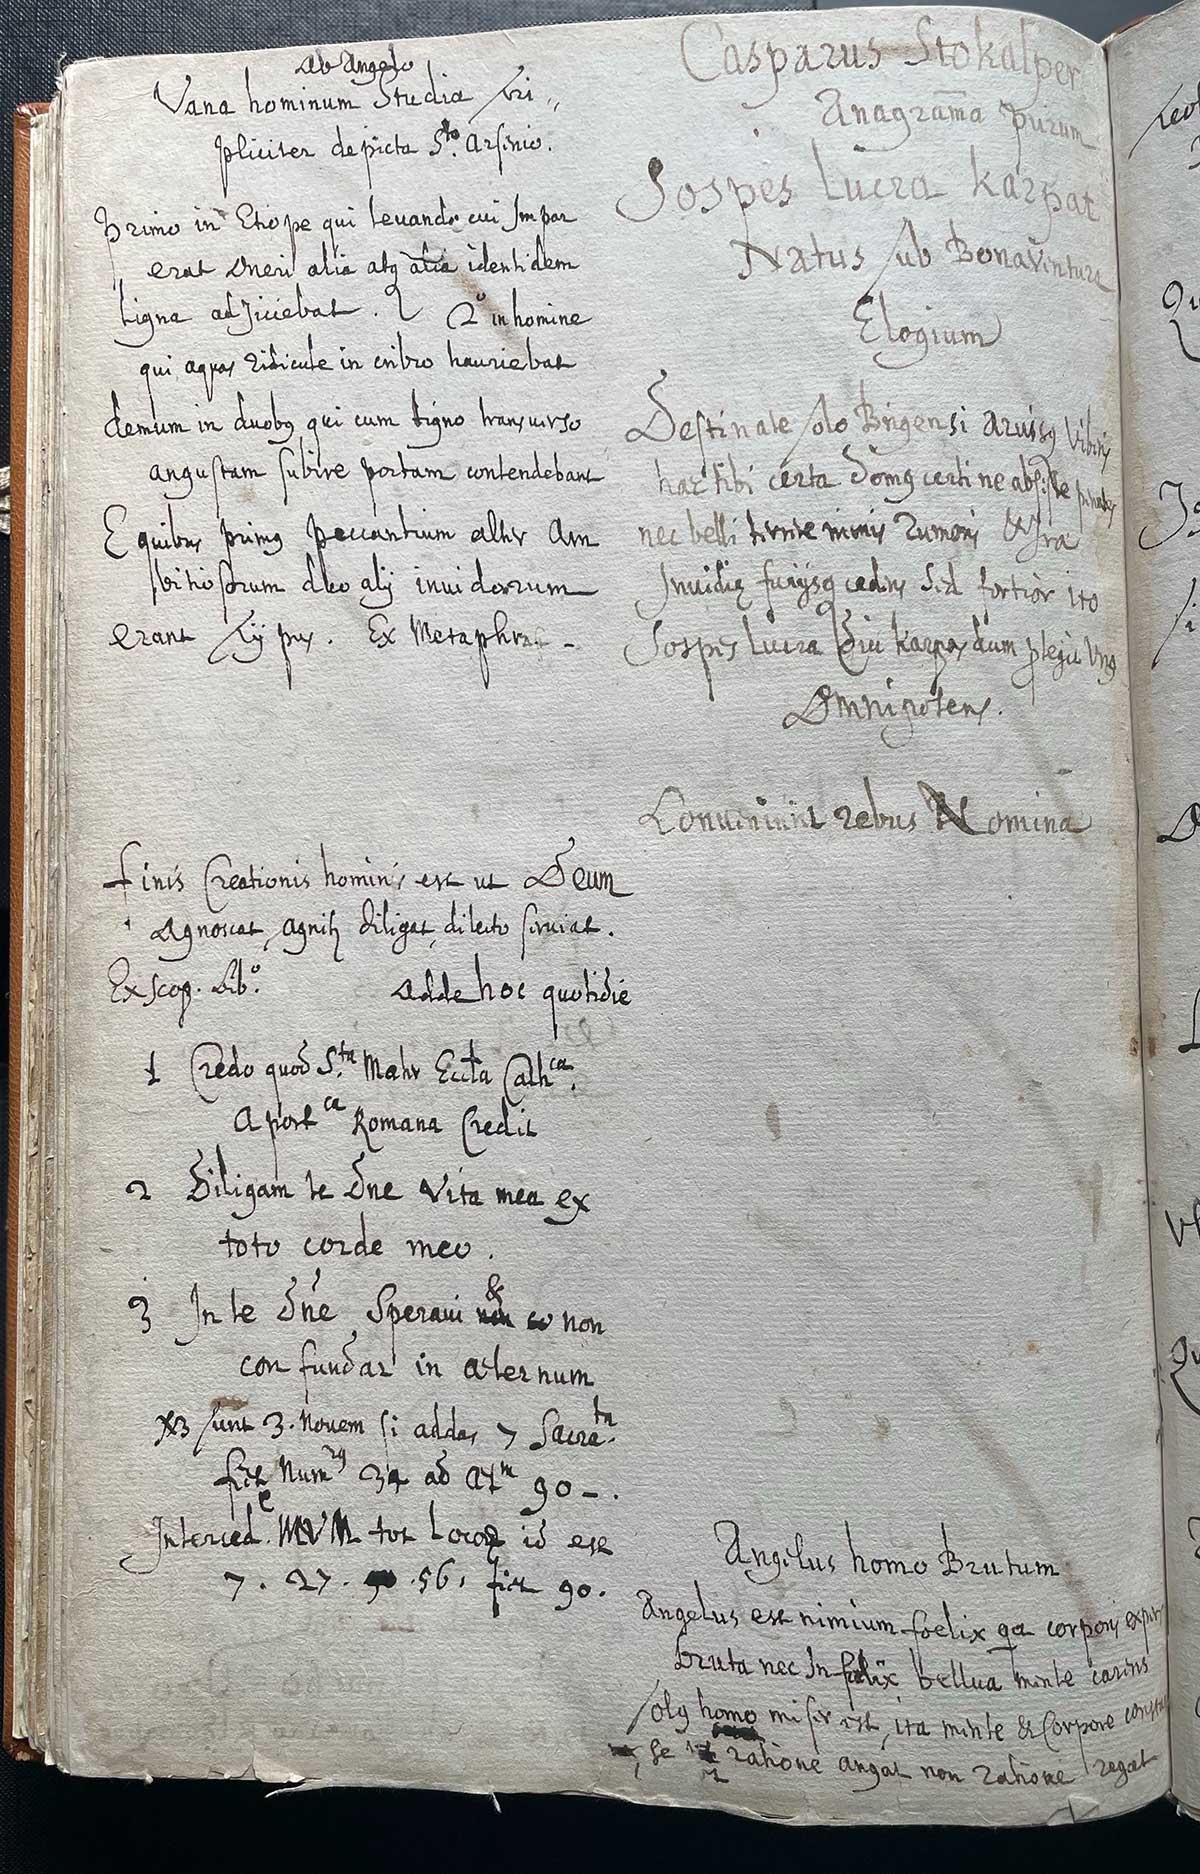 Ab Angelo
Vana hominum Studia Tri„
pliciter depicta S.to Arsenio.
Primo in Etiope qui levando cui Impar
erat Oneri alia atq alia identidem
ligna adjiciebat. 2o in homine
qui aquas ridicule in cribro hauriebat
demum in duobq qui cum tigno transverso
angustam subire portam contendebant
E quibus primq peccantium alter Am
bitiosorum duo alij invidorum
erant Typus. Ex Metaphras-
Finis Creationis hominis est ut Deum
Agnoscat, agnitu diligat, dilecto serviat.
Ex scop. bib.o Adde hoc quotidie
1 Credo quod S.ta Mater Eccta Cath.ca
Apost ca Romana Credit
2 Diligam te Dne Vita mea ex
toto corde meo.
3 In te Dne Speravi & non
confundar in aeternum
X3 sunt 3. Novem si addas 7 Sacra.ta
fiet Num rq 34 ad 90-.
Interced.e MVM tot id est
7. 27. 56. fiet 90.
Casparus Stokalper
Anagrama purum
Sospes lucra karpat
Natus sub Bonaventura
Elogium
Destinate solo Brigensi arvisq Viberis
hac tibi certa domq certi ne absiste penates
nec belli terrere minis rumoris & Ira
Invidię furijsq cedas sed fortior ito
Sospes lucra diu karpas dum Unq
Omnipotens.
Conveniunt rebus Nomina
Angelus homo Brutum
Angelus est nimium foelix qa corporis expers
bruta nec Infelix bellua mente carens
solq homo miser est, ita mente & Corpore constat
se ratione angat non ratione regat